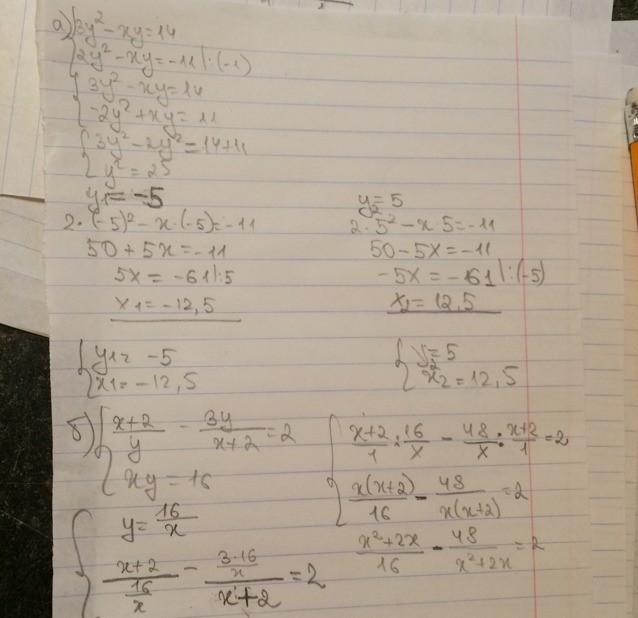 а) { 3y² − xy = 14
{ 2y² − xy = −11 |·(−1)
{ 3y² − xy = 14
{ −2y² + xy = 11
{ 3y² − 2y² = 14+11
{ y² = 25
y₁ = −5
2·(−5)² − x·(−5) = −11
50 + 5x = −11
5x = −61 |:5
x₁ = −12,5
{ y₁ = −5
{ x₁ = −12,5
y₂ = 5
2·5² − x·5 = −11
50 − 5x = −11
−5x = −61 |:(−5)
x₂ = 12,5
{ y₂ = 5
{ x₂ = 12,5
б) { (x+2)/y − 3y/(x+2) = 2
{ xy = 16
{ y = 16/x
{ (x+2)/(16/x) − (3·16/x)/(x+2) = 2
{ (x+2)/1 : 16/x − 48/x : (x+2)/1 = 2
{ x(x+2)/16 − 48/(x(x+2)) = 2
(x²+2x)/16 − 48/(x²+2x) = 2